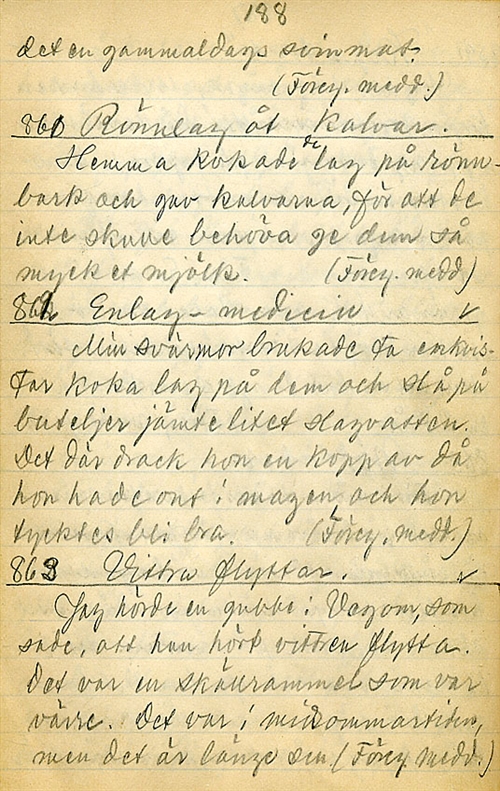 188
det en gammaldags svinmat.
(Förey. medd.)
861 Rönnlag åt kalvar.
Hemma kokade de lag på rönn-
bark och gav kalvarna, för att de
inte skulle behöva ge dem så
mycket mjölk. (Förey. medd.)
862 Enlag - medicin √
Min svärmor brukade ta enkvis-
tar koka lag på dem och slå på
buteljer jämte litet slagvatten.
Det där drack hon en kopp av då
hon hade ont i magen och hon
tycktes bli bra. (Förey. medd.)
863 Vittra flyttar. √
Jag hörde en gubbe i Vagom, som
sade, att han hört vittren flytta.
Det var en skällrammel som var
värre. Det var i midsommartiden,
men det är länge sen. (Förey. medd.)